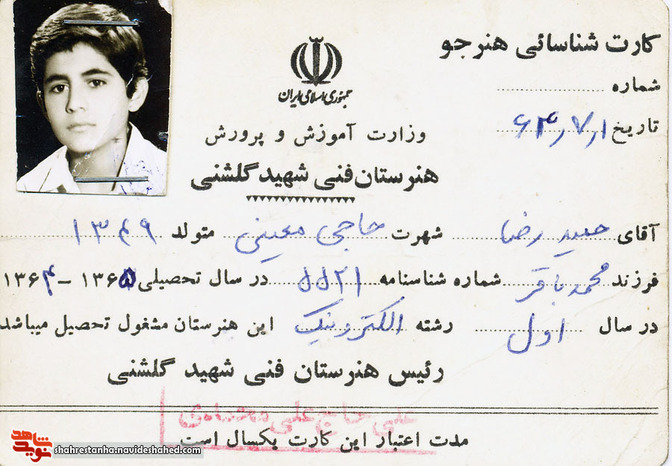 کارت شناسائی هنرجو
جمهوری اسلامی ایران
شماره
تاریخ ۶۴/۷/۱
وزارت آموزش و پرورش
هنرستان فنی شهید گلشنی
آقای حمید رضا شهرت حاجی معینی متولد ۱۳۴۹
فرزند محمد باقر شماره شناسنامه ۵۵۲۱ در سال تحصیلی ۱۳۶۵-۱۳۶۴
در سال اول رشته الکترونیک این هنرستان مشغول تحصیل میباشد
رئیس هنرستان فنی شهید گلشنی
علی حاج علی
مدت اعتبار این کارت یکسال است
نوید شاهد
shahrestanha.navideshahed.com